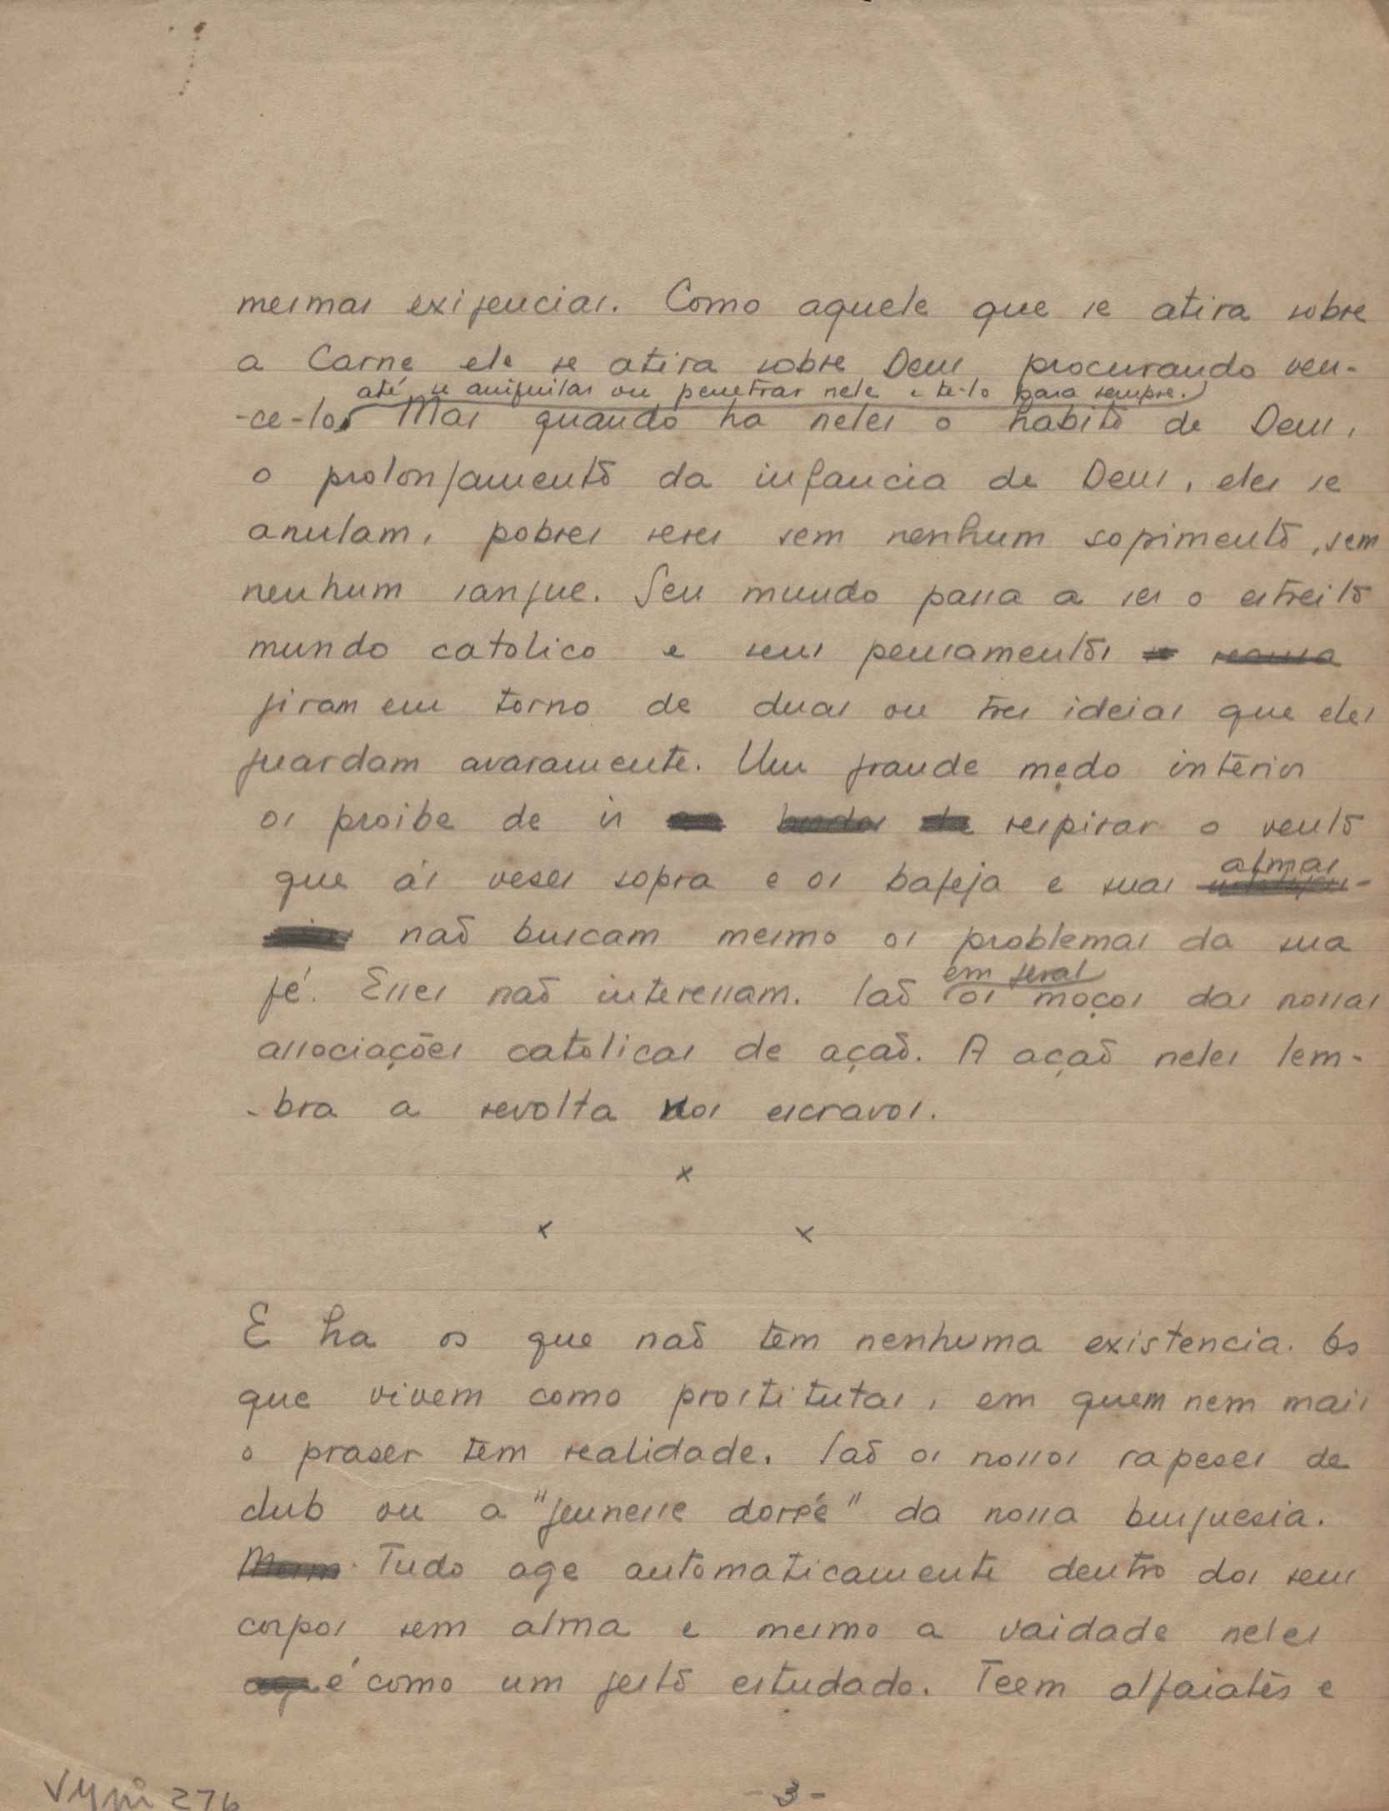 mesmas exigencias. Como aquele que se atira sobre
a Carne ele se atira sobre Deus, procurando ven-
até se aniquilar ou penetrar nele e te-lo para sempre.
-ce-lo. Mas quando ha neles o habito de Deus,
o prolongamento da infancia de Deus, eles se
anulam, pobres seres sem nenhum sofrimento, sem
nenhum sangue. Seu mundo passa a ser o estreito
mundo catolico e seus pensamentos
giram em torno de duas ou tres ideias que eles
guardam avaramente. Um grande medo interior
os proibe de ir respirar o vento
que ás veses sopra e os bafeja e suas almas
não buscam mesmo os problemas da sua
fé. Esses não interessam. São em geral os moços das nossas
associações catolicas de ação. A ação neles lem-
-bra a revolta dos escravos.
x
x x
E ha os que não têm nenhuma existencia. Os
que vivem como prostitutas, em quem nem mais
o praser tem realidade. São os nossos rapases de
club ou a "jeunesse dorée" da nossa burguesia.
Tudo age automaticamente dentro dos seus
corpos sem alma e mesmo a vaidade neles
é como um gesto estudado. Teem alfaiates e
276
- 3 -